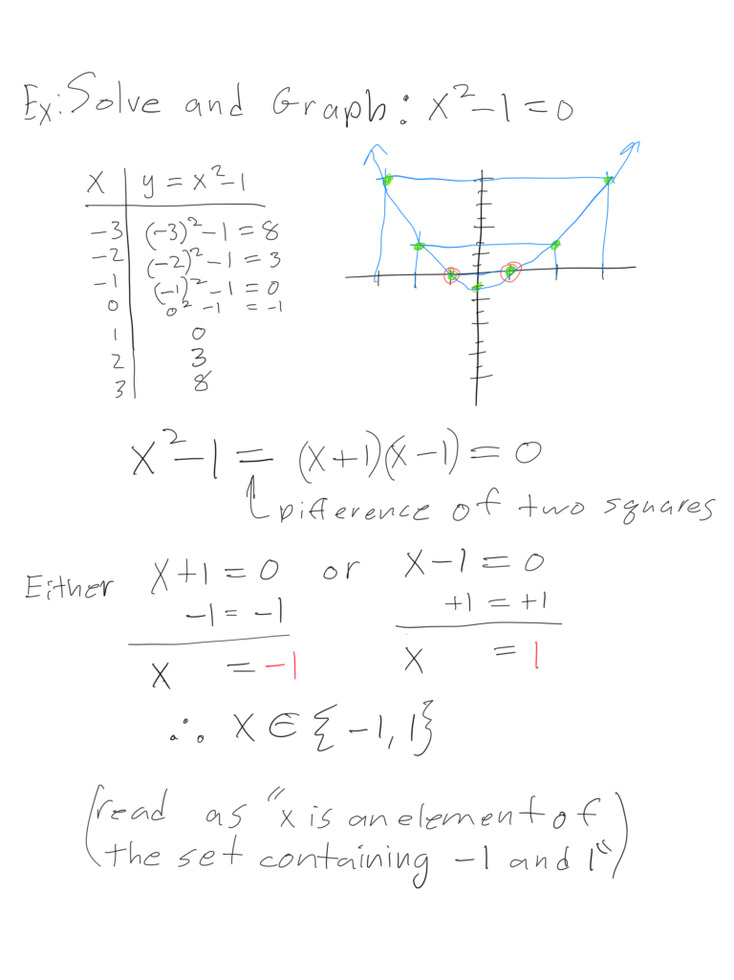 Ex: Solve and Graph: x²-1=0
x | y = x²-1
-3 | (-3)²-1 = 8
-2 | (-2)²-1 = 3
-1 | (-1)²-1 = 0
0 | 0²-1 = -1
1 | 0
2 | 3
3 | 8
x²-1 = (x+1)(x-1) = 0
Difference of two squares
Either x+1 = 0 or x-1 = 0
-1 = -1 +1 = +1
x = -1 x = 1
∴ x ∈ {-1, 1}
(read as "x is an element of
the set containing -1 and 1")